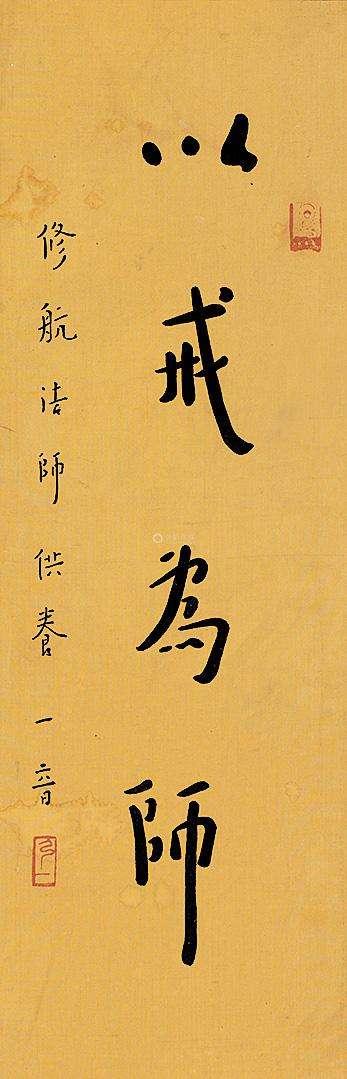 以戒為師
修航法師供養 一音